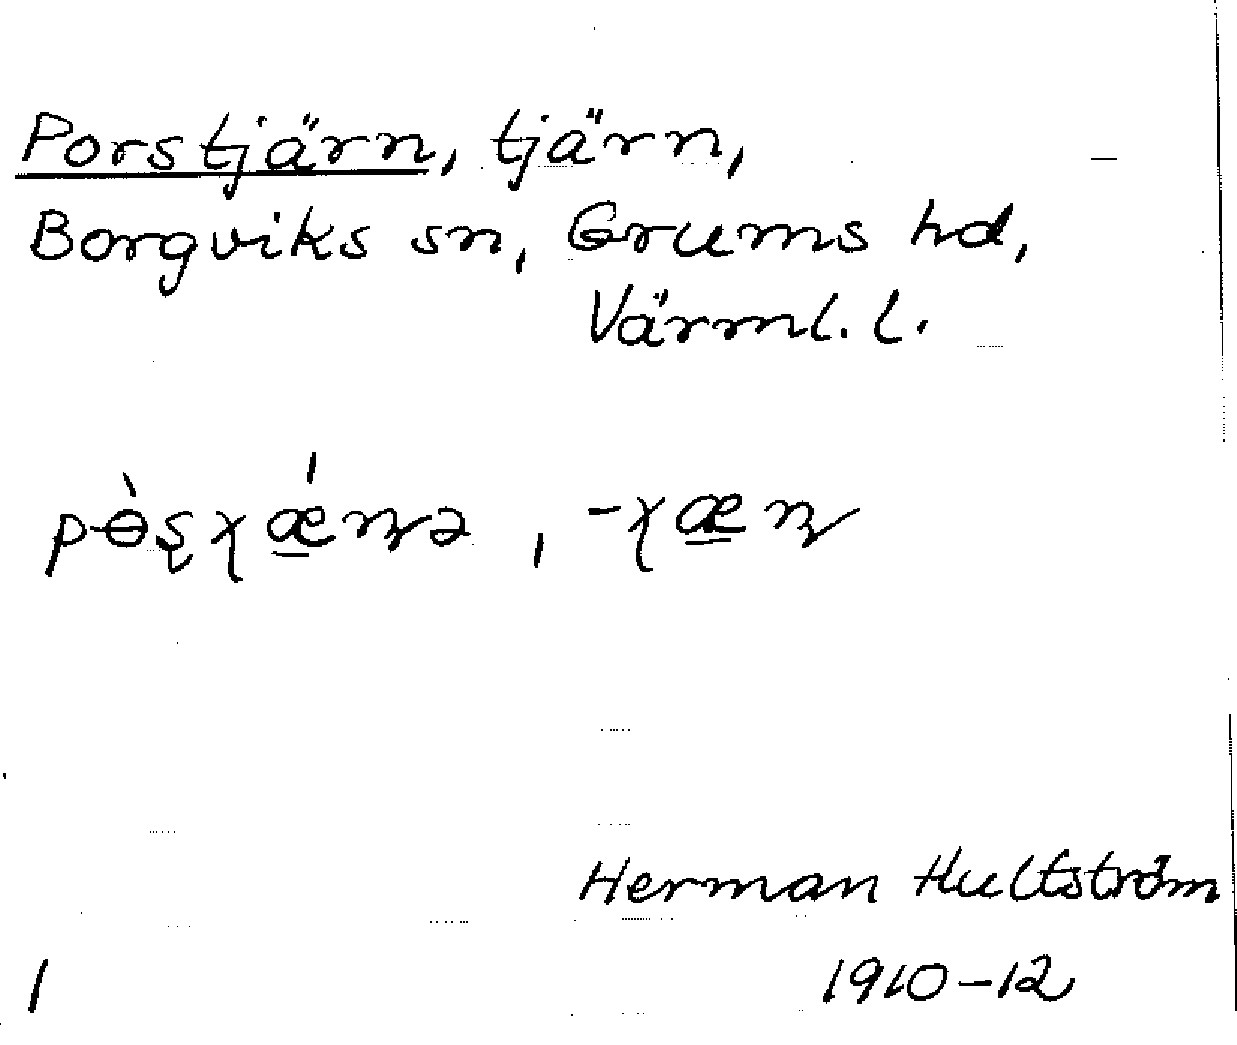 Porstjärn, tjärn,
Borgviks sn, Grums hd,
Värml. l.
Herman Hultström
1 1910-12